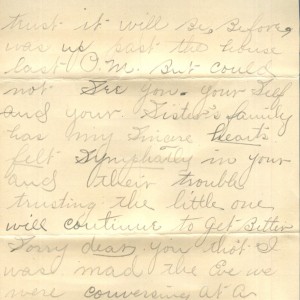 trust it will Be, Before,
was us past the house
last P.M. But could
not See you. your Self
and your Sister's family
has my Sincere hearts
felt Sympathy in your
and their trouble
trusting the little one
will continue to get Better
Sorry dear you that I
was mad the Eve we
were conversing At A